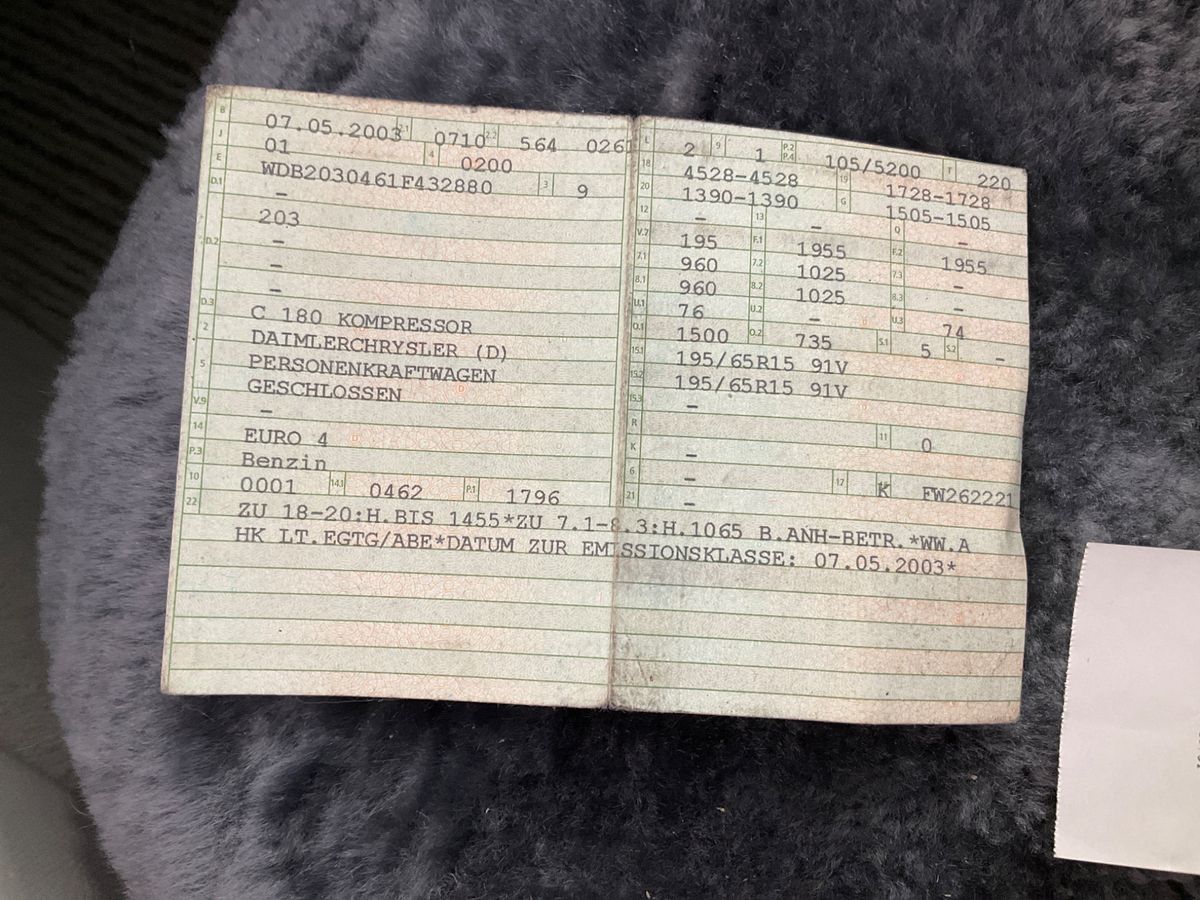 B 07.05.2003 2.1 0710 2.2 564 026
J 01 4 0200
E WDB2030461F432880 3 9
D.1 –
203
D.2 –
–
–
D.3 C 180 KOMPRESSOR
2 DAIMLERCHRYSLER (D)
5 PERSONENKRAFTWAGEN
GESCHLOSSEN
V.9 –
14 EURO 4
P.3 Benzin
10 0001 14.1 0462 P.1 1796
L 2 9 1 P.2 P.4 105/5200 T 220
18 4528-4528 19 1728-1728
20 1390-1390 G 1505-1505
12 – 13 – Q –
V.7 195 F.1 1955 F.2 1955
7.1 960 7.2 1025 7.3 –
8.1 960 8.2 1025 8.3 –
U.1 76 U.2 – U.3 74
O.1 1500 O.2 735 S.1 5 S.2 –
15.1 195/65R15 91V
15.2 195/65R15 91V
15.3 –
R 11 0
K –
6 – 17 K FW262221
21 –
22 ZU 18-20:H.BIS 1455*ZU 7.1-8.3:H.1065 B.ANH-BETR.*WW.A
HK LT.EGTG/ABE*DATUM ZUR EMISSIONSKLASSE: 07.05.2003*